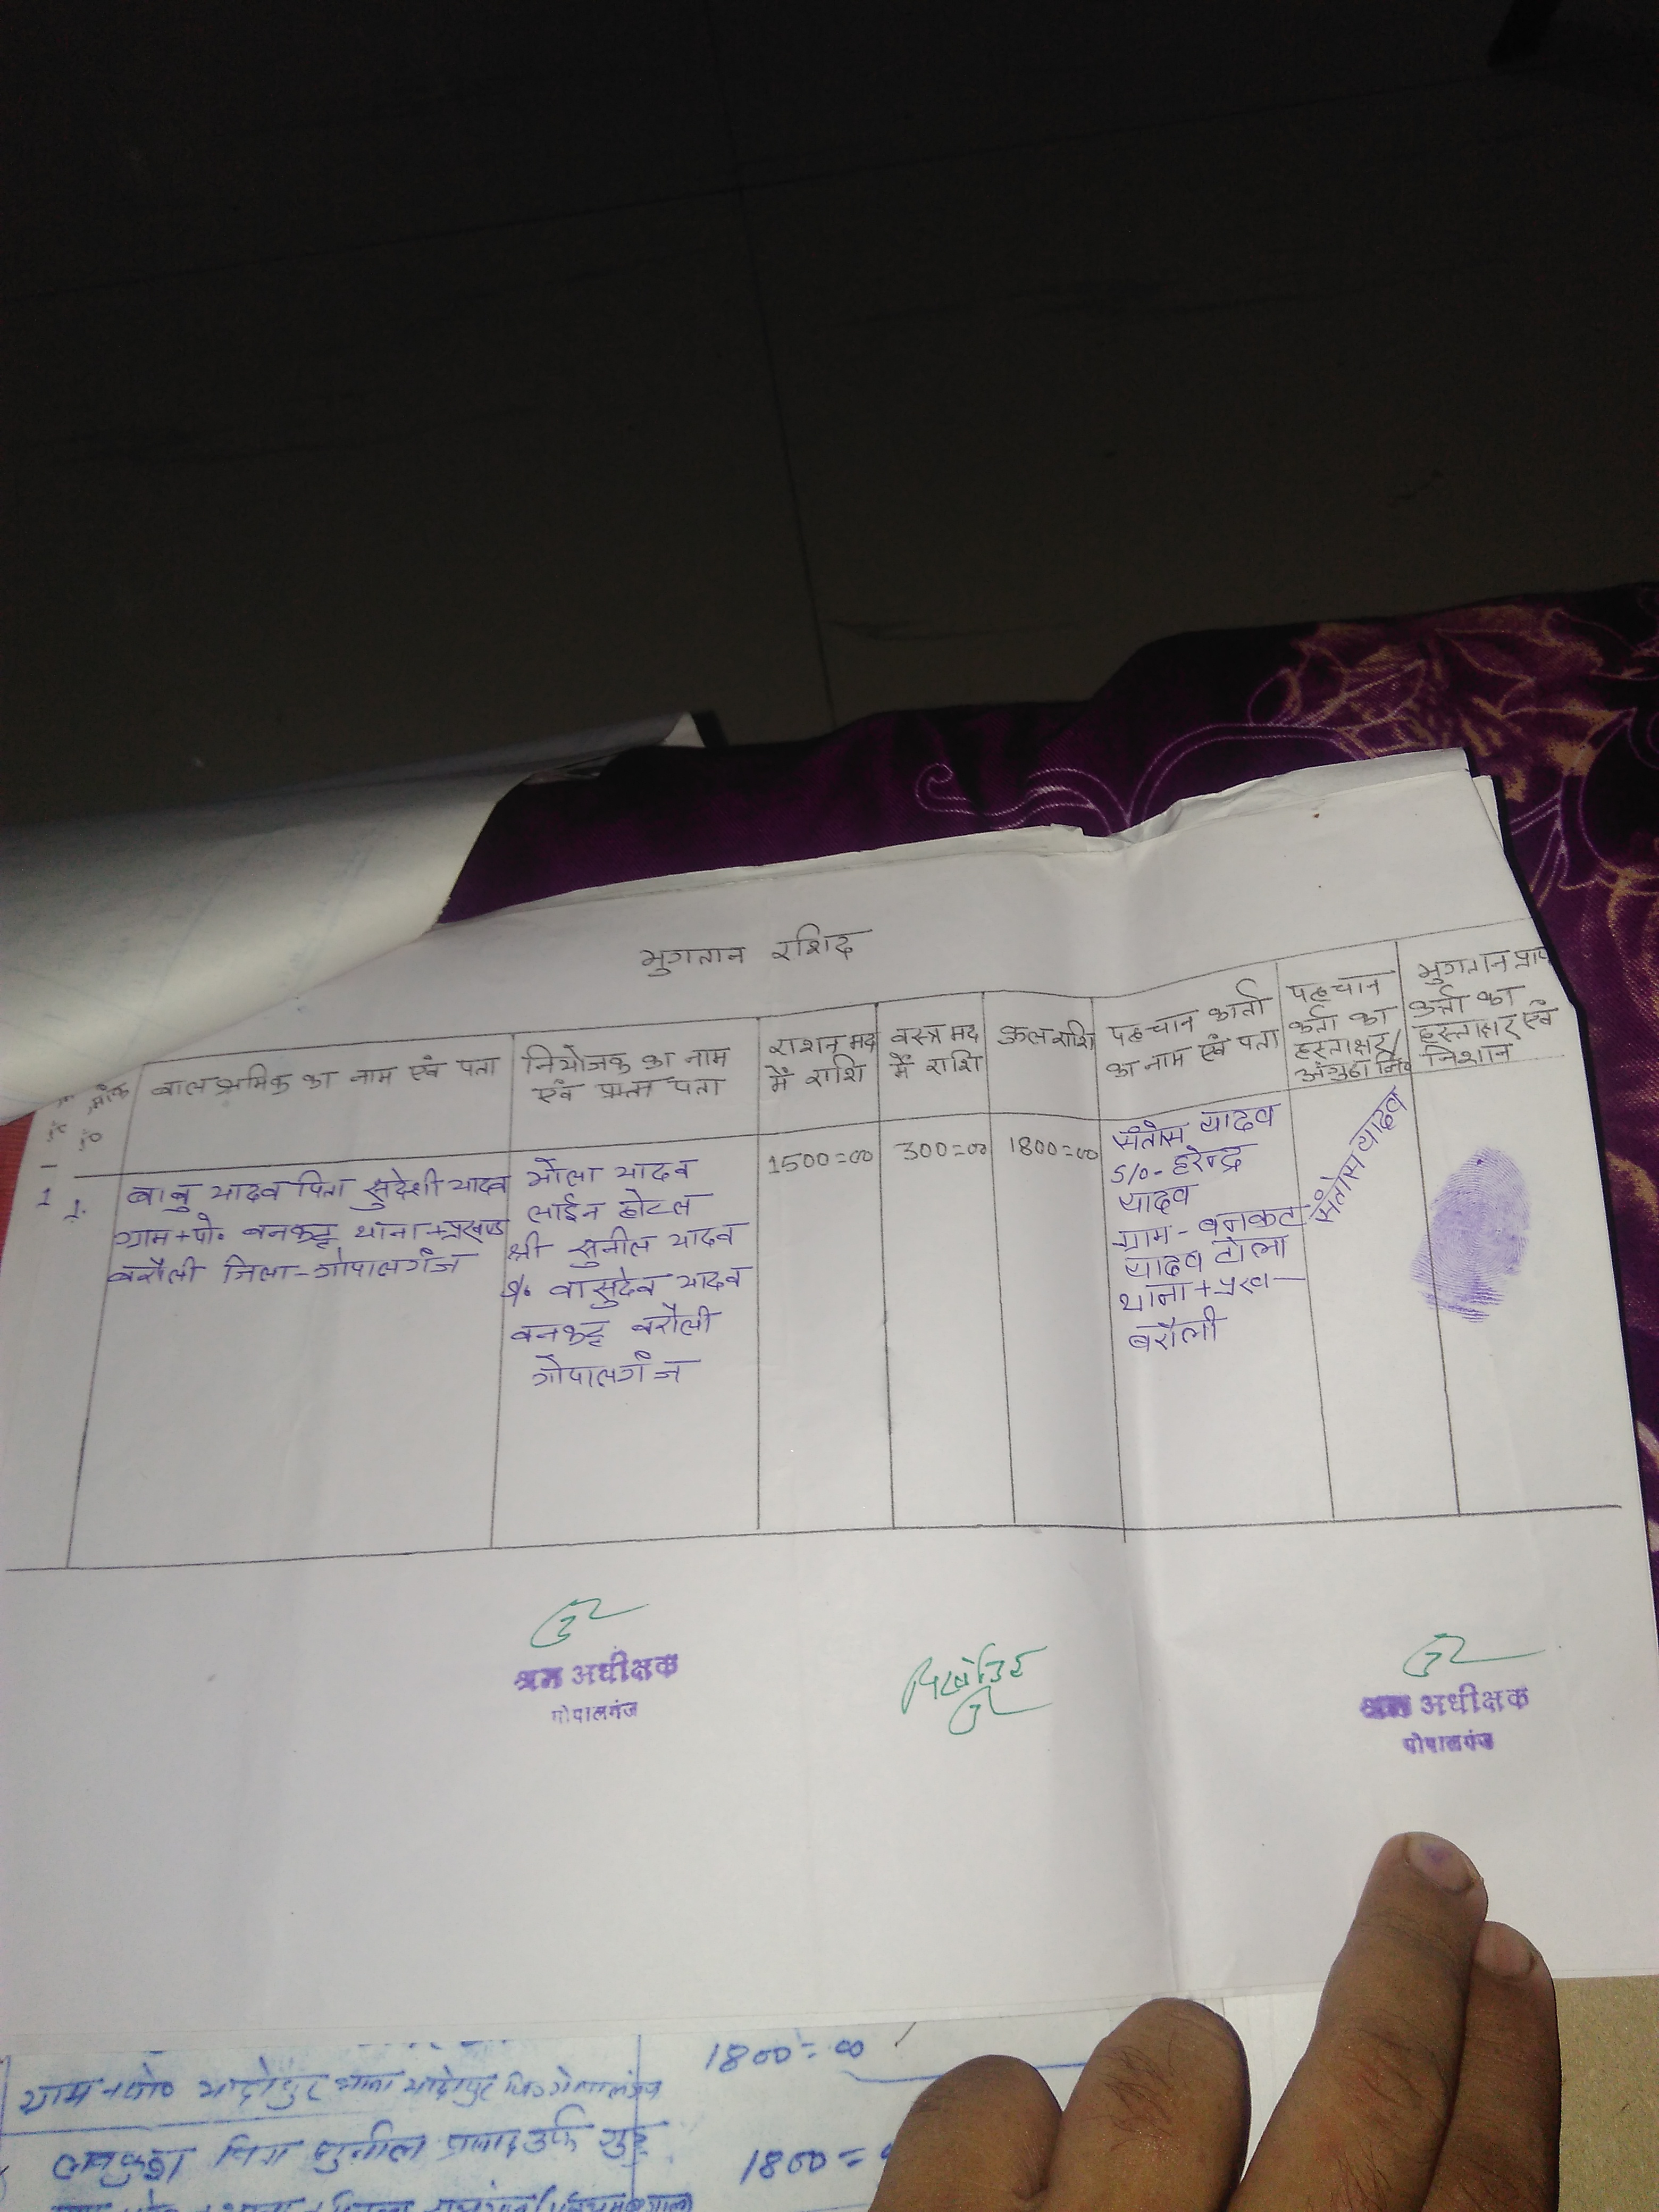 भुगतान रशिद
बाल श्रमिक का नाम एवं पता
नियोजक का नाम
एवं पता
राशन मद
में राशि
वस्त्र मद
में राशि
कुल राशि
पहचान कर्ता
का नाम एवं पता
पहचान
कर्ता का
हस्ताक्षर/
अंगुठा नि०
भुगतान प्राप
कर्ता का
हस्ताक्षर एवं
निशान
1 1.
बाबु यादव पिता सुदेशी यादव
ग्राम+पो० बनकट थाना+प्रखण्ड
बरौली जिला-गोपालगंज
भोला यादव
लाईन होटल
श्री सुनील यादव
वासुदेव यादव
बनकट बरौली
गोपालगंज
1500=00
300=00
1800=00
संतोस यादव
S/o- हरेन्द्र
यादव
ग्राम- बनकट
यादव टोला
थाना+प्रख-
बरौली
संतोस यादव
श्रम अधीक्षक
गोपालगंज
श्रम अधीक्षक
गोपालगंज
1800=00
ग्राम+पो०
पिता सुनील प्रसाद उर्फ
1800=